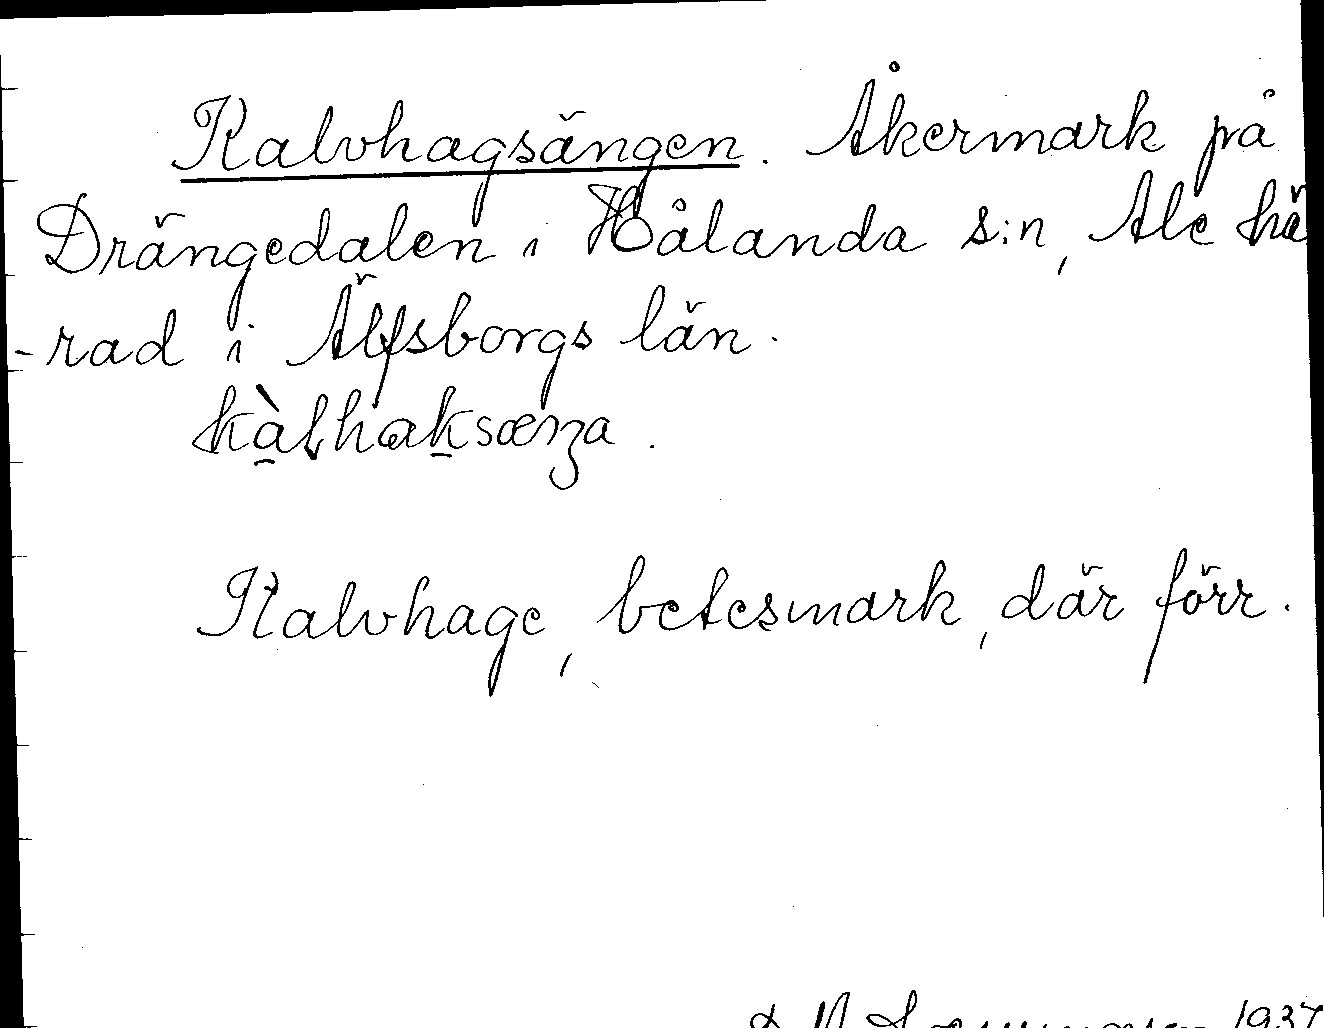 Kalvhagsängen. Åkermark på
Drängedalen i Hålanda s:n, Ale hä
-rad i Älfsborgs län.
kàlhaksæŋa.
Kalvhage, betesmark, där förr.
1937